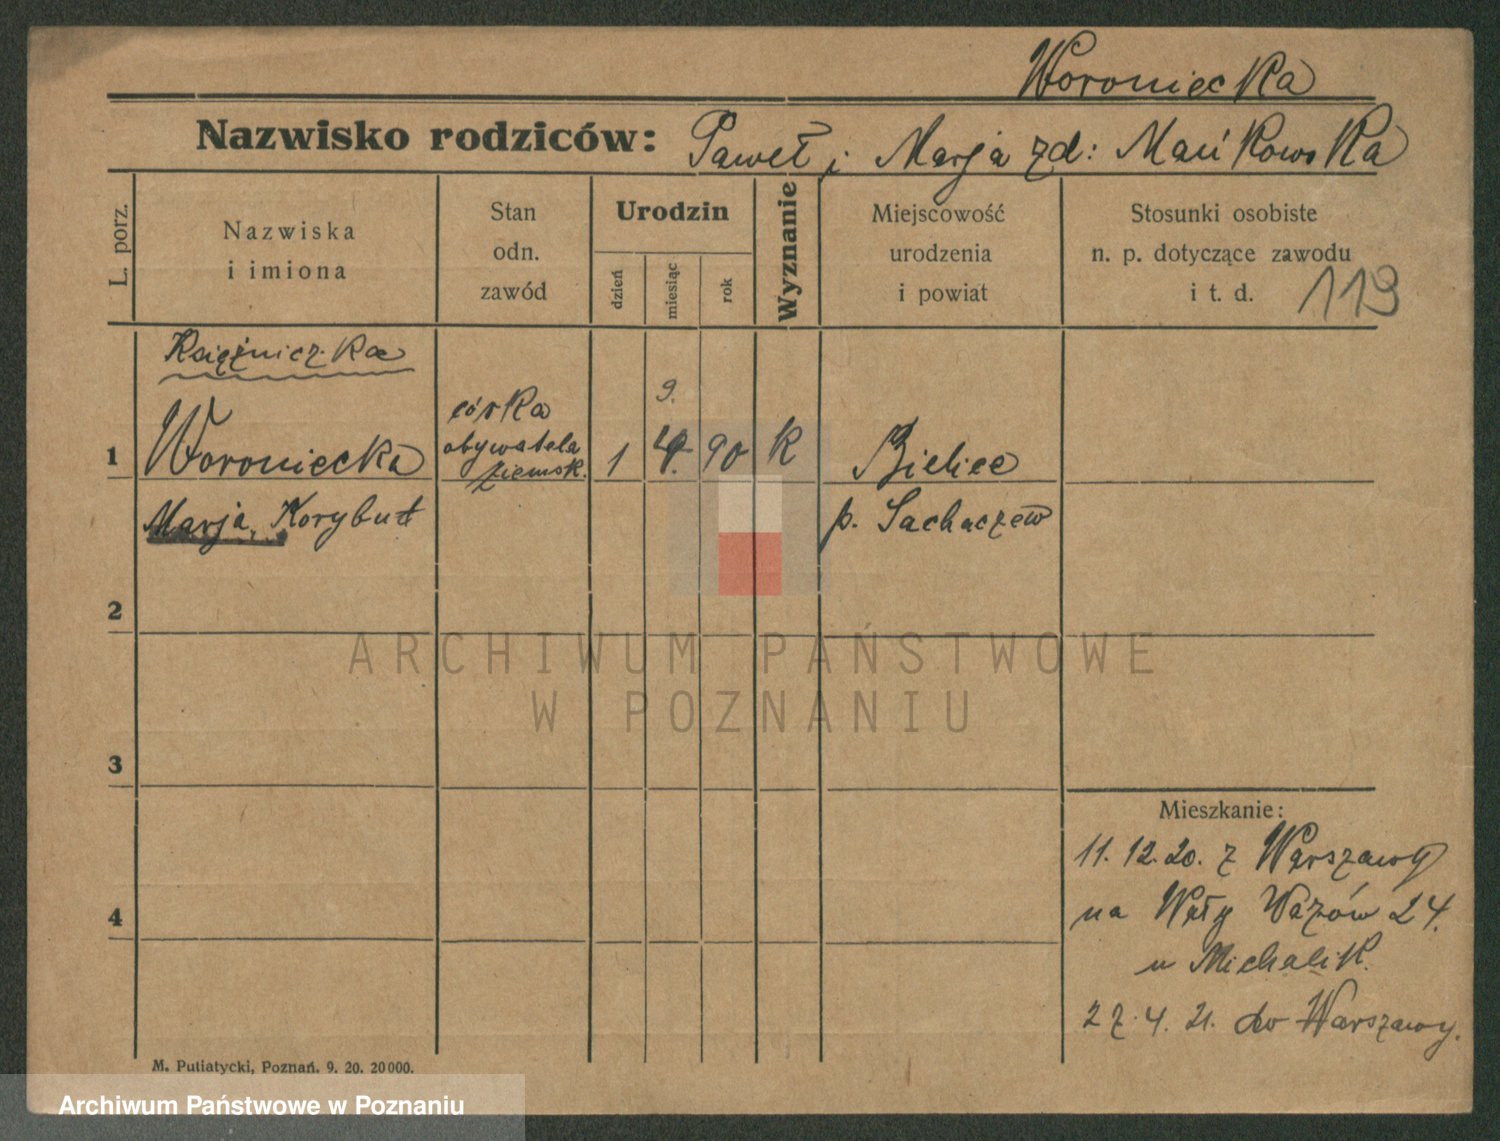 Woroniecka
Nazwisko rodziców: Paweł i Marja zd: Mańkowska
L. porz.
Nazwiska
i imiona
Stan
odn.
zawód
Urodzin
dzień
miesiąc
rok
Wyznanie
Miejscowość
urodzenia
i powiat
Stosunki osobiste
n. p. dotyczące zawodu
i t. d.
119
Księżniczka
1 Woroniecka
Marja, Korybut
córka
obywatela
ziemsk.
1
9.
90
K
Bielice
p. Sachaczew
2
3
4
Mieszkanie:
11. 12. 20. z Warszawy
na Wały Wazów 24.
u Michalik.
27. 4. 21. do Warszawy.
M. Putiatycki, Poznań. 9. 20. 20000.
ARCHIWUM PAŃSTWOWE
W POZNANIU
Archiwum Państwowe w Poznaniu